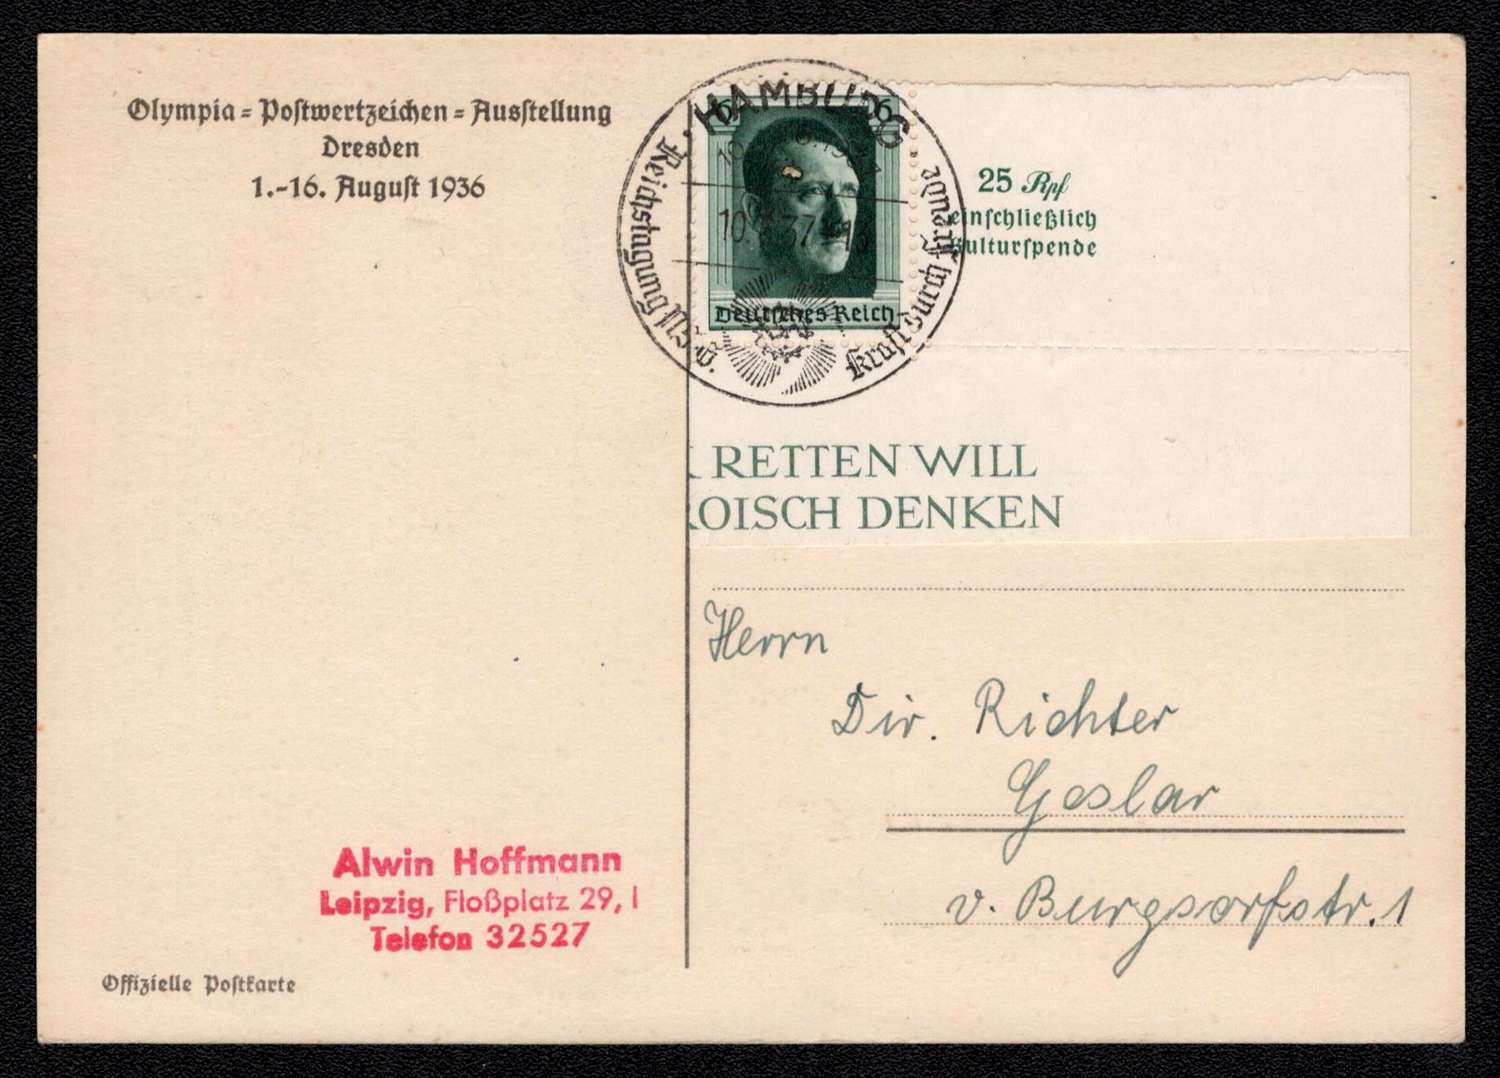 Olympia-Postwertzeichen-Ausstellung
Dresden
1.-16. August 1936
HAMBURG
Reichstagung N.S.G.
Kraft durch Freude
6 6
Deutsches Reich
25 Rpf
einschließlich
Kulturspende
RETTEN WILL
ROISCH DENKEN
Herrn
Dir. Richter
Goslar
v. Burgsorfstr. 1
Alwin Hoffmann
Leipzig, Floßplatz 29, I
Telefon 32527
Offizielle Postkarte